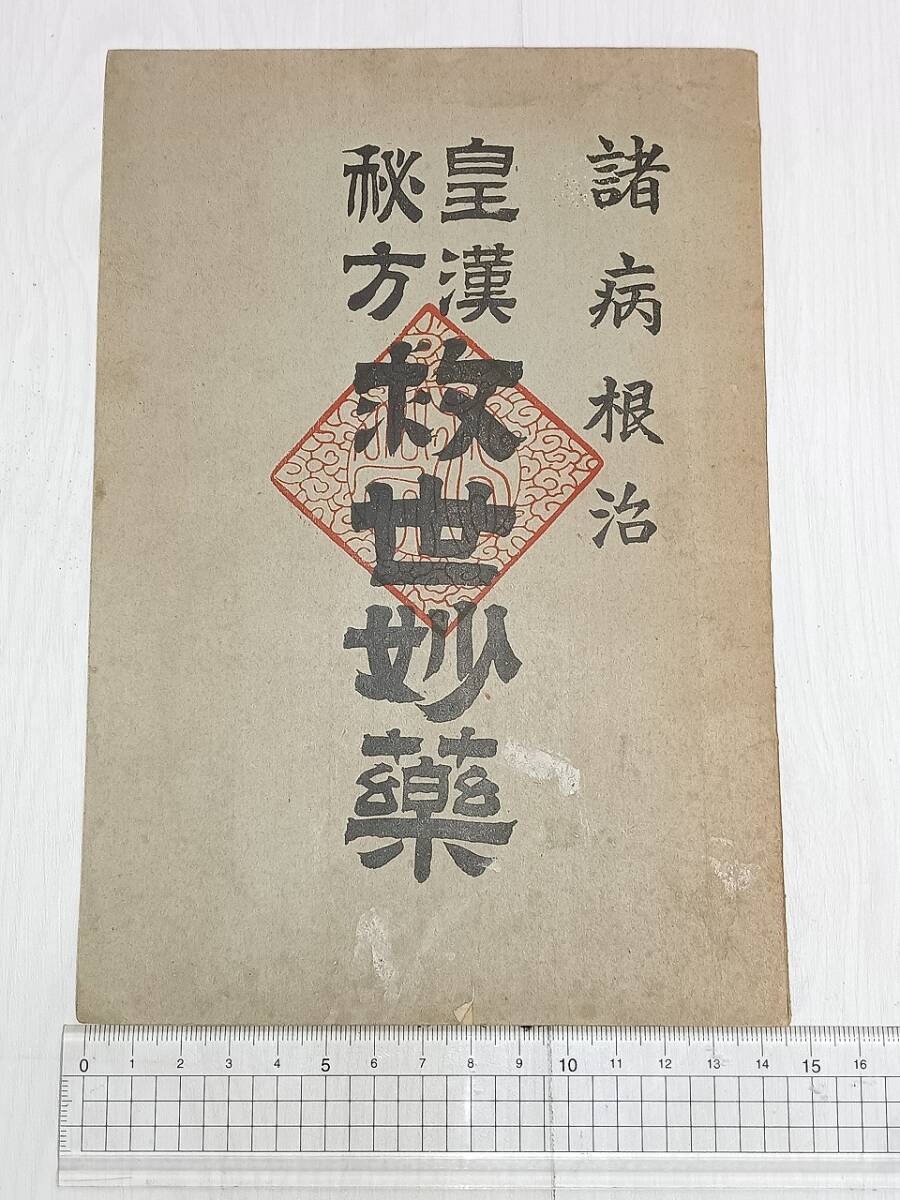 諸病根治
皇漢
秘方
救世妙藥
0 1 2 3 4 5 6 7 8 9 10 11 12 13 14 15 16